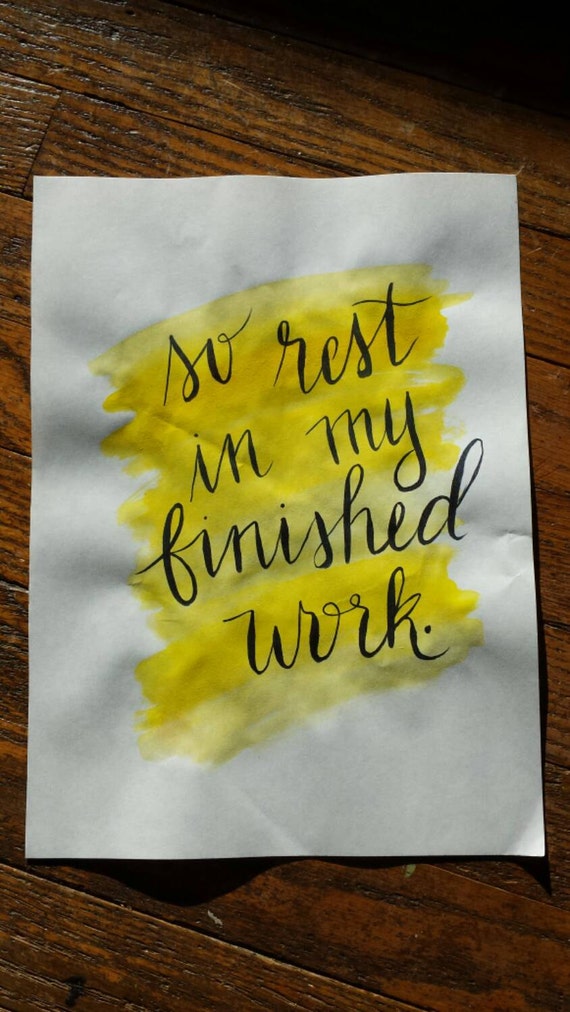 so rest
in my
finished
work.